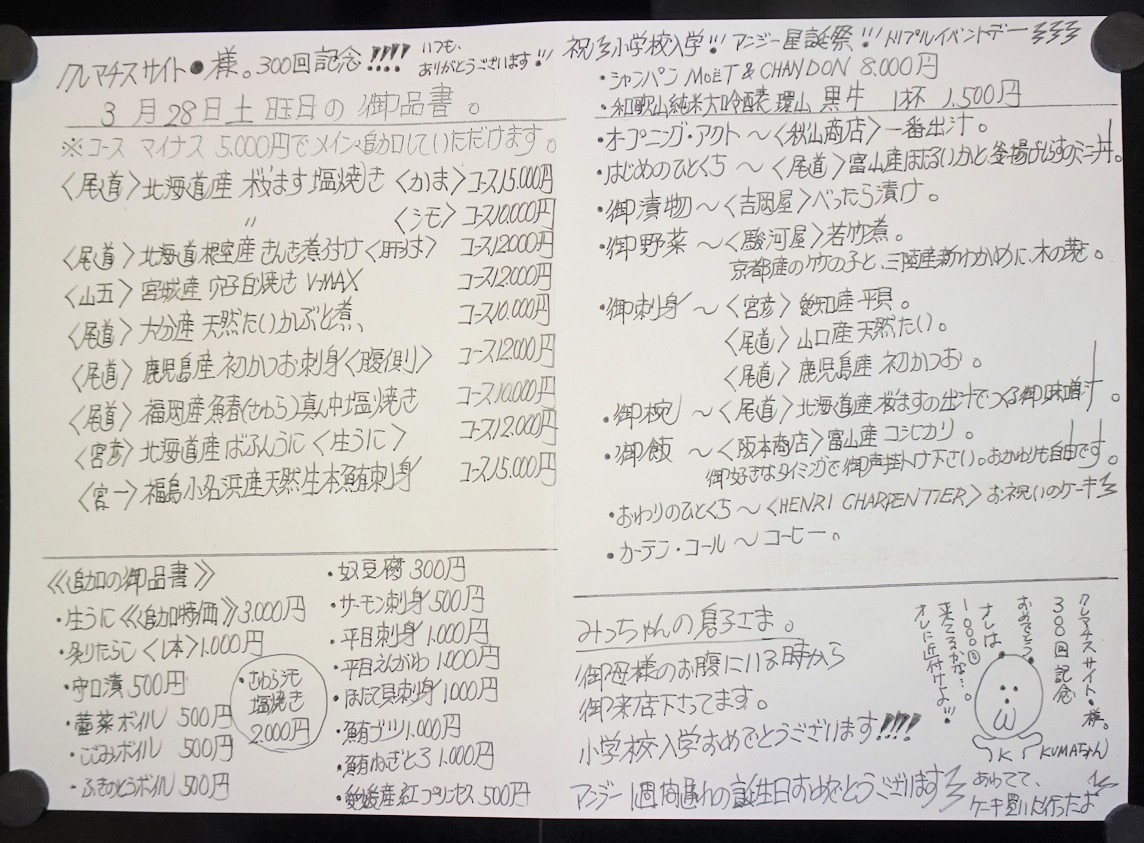 クレマチスサイト●様。300回記念!!!! いつも、
ありがとうございます!!
3月28日土曜日の御品書。
※コース マイナス 5.000円でメイン追加していただけます。
〈尾道〉北海道産 桜ます塩焼き〈かま〉コース15.000円
〃 〈シモ〉コース10.000円
〈尾道〉北海道根室産きんき煮付け〈肝付〉 コース12.000円
〈山五〉宮城産 穴子白焼き V-MAX コース12.000円
〈尾道〉大分産 天然たいかぶと煮、 コース10.000円
〈尾道〉鹿児島産 初かつお刺身〈腹側〉 コース12.000円
〈尾道〉福岡産 鰆(さわら)真ん中塩焼き コース10.000円
〈宮彦〉北海道産ばふんうに〈生うに〉 コース12.000円
〈宮一〉福島小名浜産天然生本鮪刺身 コース15.000円
《追加の御品書》
・生うに《追加特価》3.000円
・炙りたらこ〈1本〉1.000円
・守口漬 500円
・蕾菜ボイル 500円
・こごみボイル 500円
・ふきのとうボイル 500円
・さわらシモ
塩焼き
2.000円
・奴豆腐 300円
・サーモン刺身 500円
・平目刺身 1.000円
・平目えんがわ 1.000円
・ほたて貝刺身 1000円
・鮪ブツ 1.000円
・鮪ねぎとろ 1.000円
・愛媛産紅プリンセス 500円
祝 小学校入学!! アンジー星誕祭!! トリプルイベントデー
・シャンパン MOËT & CHANDON 8.000円
・和歌山純米大吟醸 環山 黒牛 1杯 1.500円
・オープニング・アクト〜〈秋山商店〉一番出汁。
・はじめのひとくち〜〈尾道〉富山産ほたるいかと、釜揚げしらすのミニ丼。
・御漬物〜〈吉岡屋〉べったら漬け。
・御野菜〜〈駿河屋〉若竹煮。
京都産の竹の子と、三陸産新わかめに、木の芽。
・御刺身〜〈宮彦〉愛知産平貝。
〈尾道〉山口産天然たい。
〈尾道〉鹿児島産 初かつお。
・御椀〜〈尾道〉北海道産桜ますの出汁でつくる御味噌汁。
・御飯〜〈阪本商店〉富山産コシヒカリ。
御好きなタイミングで御声掛け下さい。おかわりも自由です。
・おわりのひとくち〜〈HENRI CHARPENTIER〉お祝いのケーキ
・カーテン・コール〜コーヒー。
みっちゃんの息子さま。
御母様のお腹にいる時から
御来店下さってます。
小学校入学おめでとうございます!!!!
アンジー1週間遅れの誕生日おめでとうございます
クレマチスサイト・様。
300回記念
おめでとう
オレは
1000回
来てるかな…。
オレに近付けよ!!
K.
KUMAちゃん
あわてて、
ケーキ買いに行ったよ